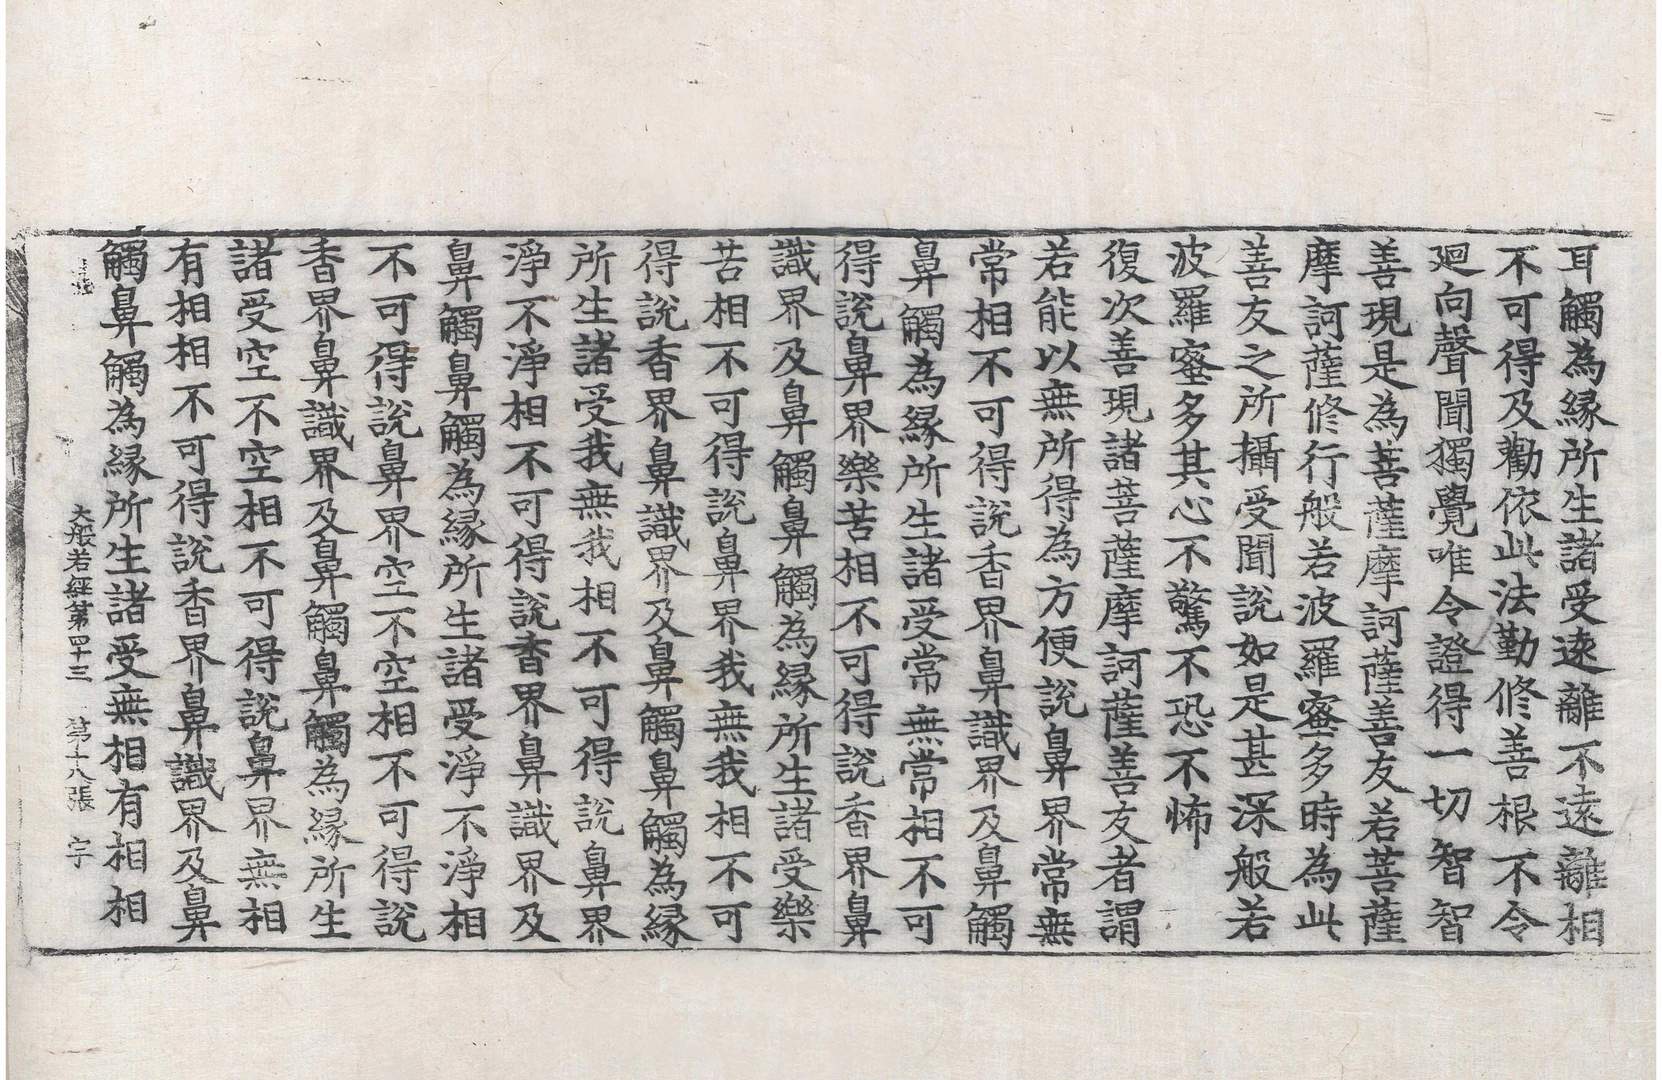 耳觸為緣所生諸受遠離不遠離相
不可得及勸依此法勤修善根不令
廻向聲聞獨覺唯令證得一切智智
善現是為菩薩摩訶薩善友若菩薩
摩訶薩修行般若波羅蜜多時為此
善友之所攝受聞說如是甚深般若
波羅蜜多其心不驚不恐不怖
復次善現諸菩薩摩訶薩善友者謂
若能以無所得為方便說鼻界常無
常相不可得說香界鼻識界及鼻觸
鼻觸為緣所生諸受常無常相不可
得說鼻界樂苦相不可得說香界鼻
識界及鼻觸鼻觸為緣所生諸受樂
苦相不可得說鼻界我無我相不可
得說香界鼻識界及鼻觸鼻觸為緣
所生諸受我無我相不可得說鼻界
淨不淨相不可得說香界鼻識界及
鼻觸鼻觸為緣所生諸受淨不淨相
不可得說鼻界空不空相不可得說
香界鼻識界及鼻觸鼻觸為緣所生
諸受空不空相不可得說鼻界無相
有相相不可得說香界鼻識界及鼻
觸鼻觸為緣所生諸受無相有相相
大般若經第四十三 第十八張 字